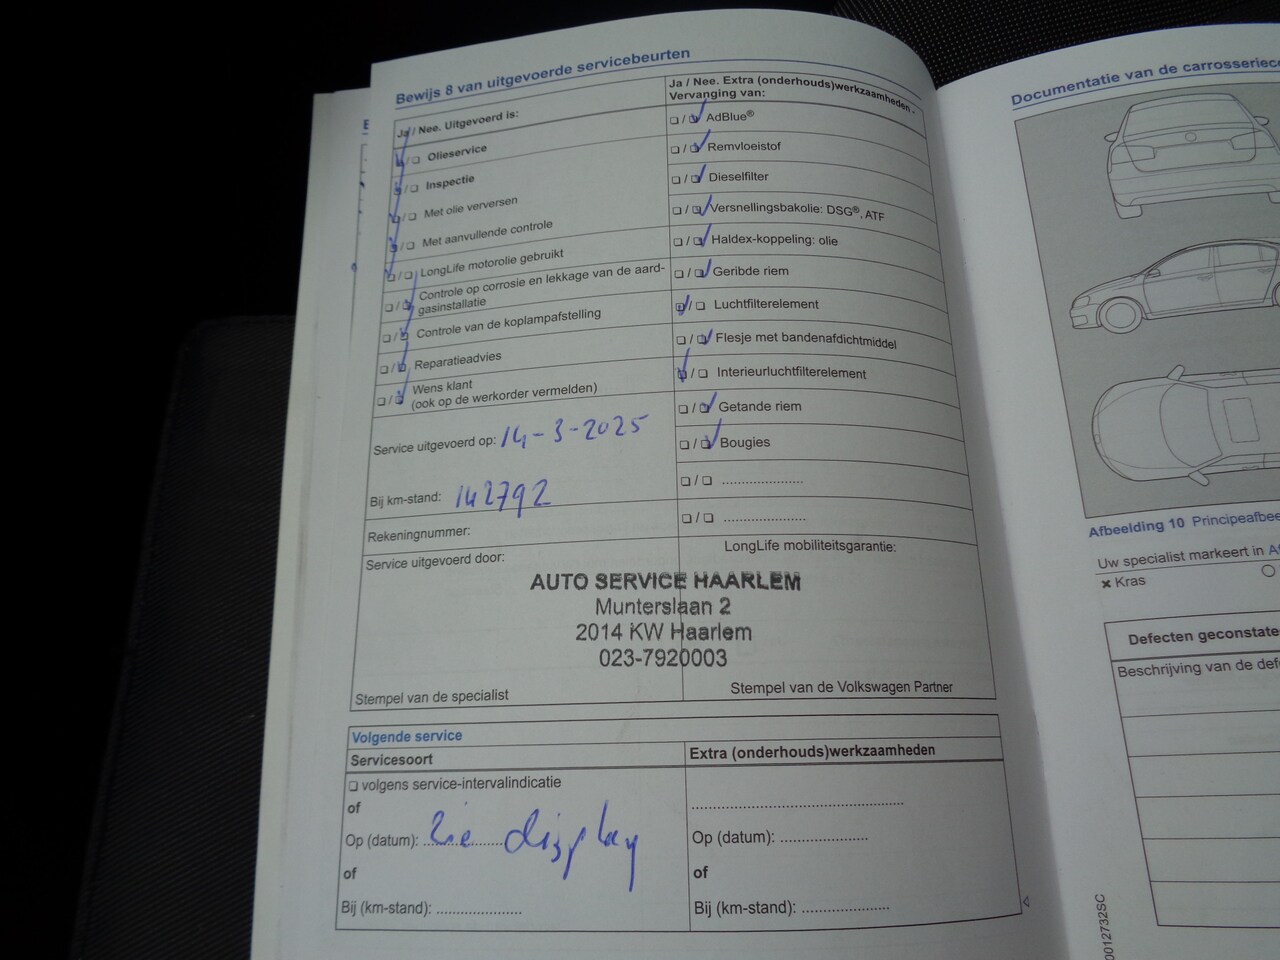 Bewijs 8 van uitgevoerde servicebeurten
Ja / Nee. Uitgevoerd is:
❏ / ❏ Olieservice
❏ / ❏ Inspectie
❏ / ❏ Met olie verversen
❏ / ❏ Met aanvullende controle
❏ / ❏ LongLife motorolie gebruikt
❏ / ❏ Controle op corrosie en lekkage van de aard-
gasinstallatie
❏ / ❏ Controle van de koplampafstelling
❏ / ❏ Reparatieadvies
❏ / ❏ Wens klant
(ook op de werkorder vermelden)
Service uitgevoerd op: 14-3-2025
Bij km-stand: 142792
Rekeningnummer:
Service uitgevoerd door:
Ja / Nee. Extra (onderhouds)werkzaamheden -
Vervanging van:
❏ / ❏ AdBlue®
❏ / ❏ Remvloeistof
❏ / ❏ Dieselfilter
❏ / ❏ Versnellingsbakolie: DSG®, ATF
❏ / ❏ Haldex-koppeling: olie
❏ / ❏ Geribde riem
❏ / ❏ Luchtfilterelement
❏ / ❏ Flesje met bandenafdichtmiddel
❏ / ❏ Interieurluchtfilterelement
❏ / ❏ Getande riem
❏ / ❏ Bougies
❏ / ❏ ....................
❏ / ❏ ....................
LongLife mobiliteitsgarantie:
AUTO SERVICE HAARLEM
Munterslaan 2
2014 KW Haarlem
023-7920003
Stempel van de specialist
Stempel van de Volkswagen Partner
Volgende service
Servicesoort
❏ volgens service-intervalindicatie
of
Op (datum): zie display
of
Bij (km-stand): ....................
Extra (onderhouds)werkzaamheden
..................................................
Op (datum): ....................
of
Bij (km-stand): ....................
Documentatie van de carrosseriec
Afbeelding 10 Principeafbee
Uw specialist markeert in Af
× Kras
Defecten geconstate
Beschrijving van de defe
0012732SC